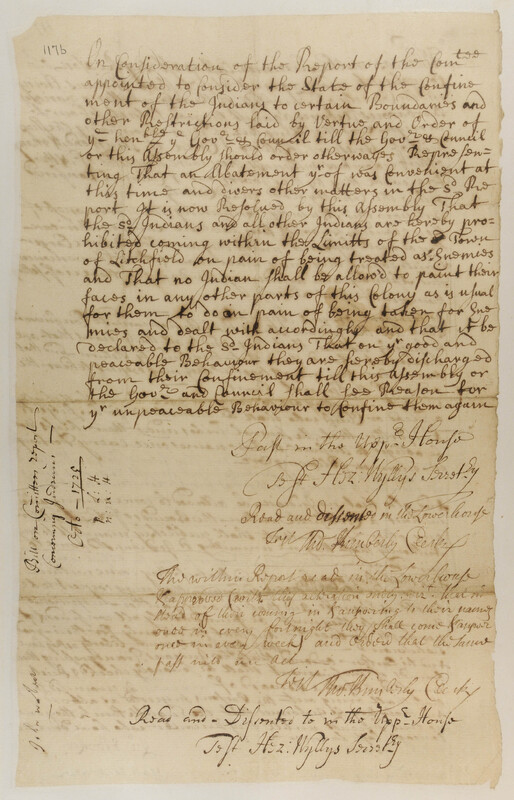 117b
In Consideration of the Report of the Com^tee
appointed to Consider the State of the Confine
ment of the Indians to certain Boundaries and
other Restrictions laid by Vertue and Order of
y^e hon^ble y^e Gov^r & Council till the Gov^r & Council
or this Assembly should order otherwayes Represen-
ting That an Abatement y^r of was Convenient at
this time and divers other matters in the s^d Re
port It is now Resolved by this Assembly That
the s^d Indians and all other Indians are hereby pro-
hibited coming within the Limitts of the Town
of Litchfield on pain of being treated as Enemies
and That no Indian shall be allowed to paint their
faces in any other parts of this Colony as is usual
for them to do on pain of being taken for Ene
mies and dealt with accordingly and that it be
declared to the s^d Indians That on y^r good and
peaceable Behaviour they are hereby discharged
from their Confinement till this Assembly or
the Gov^r and Council shall see Reason for
y^r unpeaceable Behaviour to Confine them again
Past in the Upp^r House
Test Hez: Wyllys Secret^ry
Read and dissented in the Lower house
Test Tho Kimberly Clerk
The within Report read in the Lower house
& approved with this alteration
of their coming in & answering to their names
once in every fortnight they shall come & answer
once in every week and ordered that the same
pass into an Act
Test Tho Kimberly Clerk
Read and Discented to in the Upp^r House
Test Hez: Wyllys Secret^ry
Bill on Comittees report
Concerning Indians
Octb^r 1725